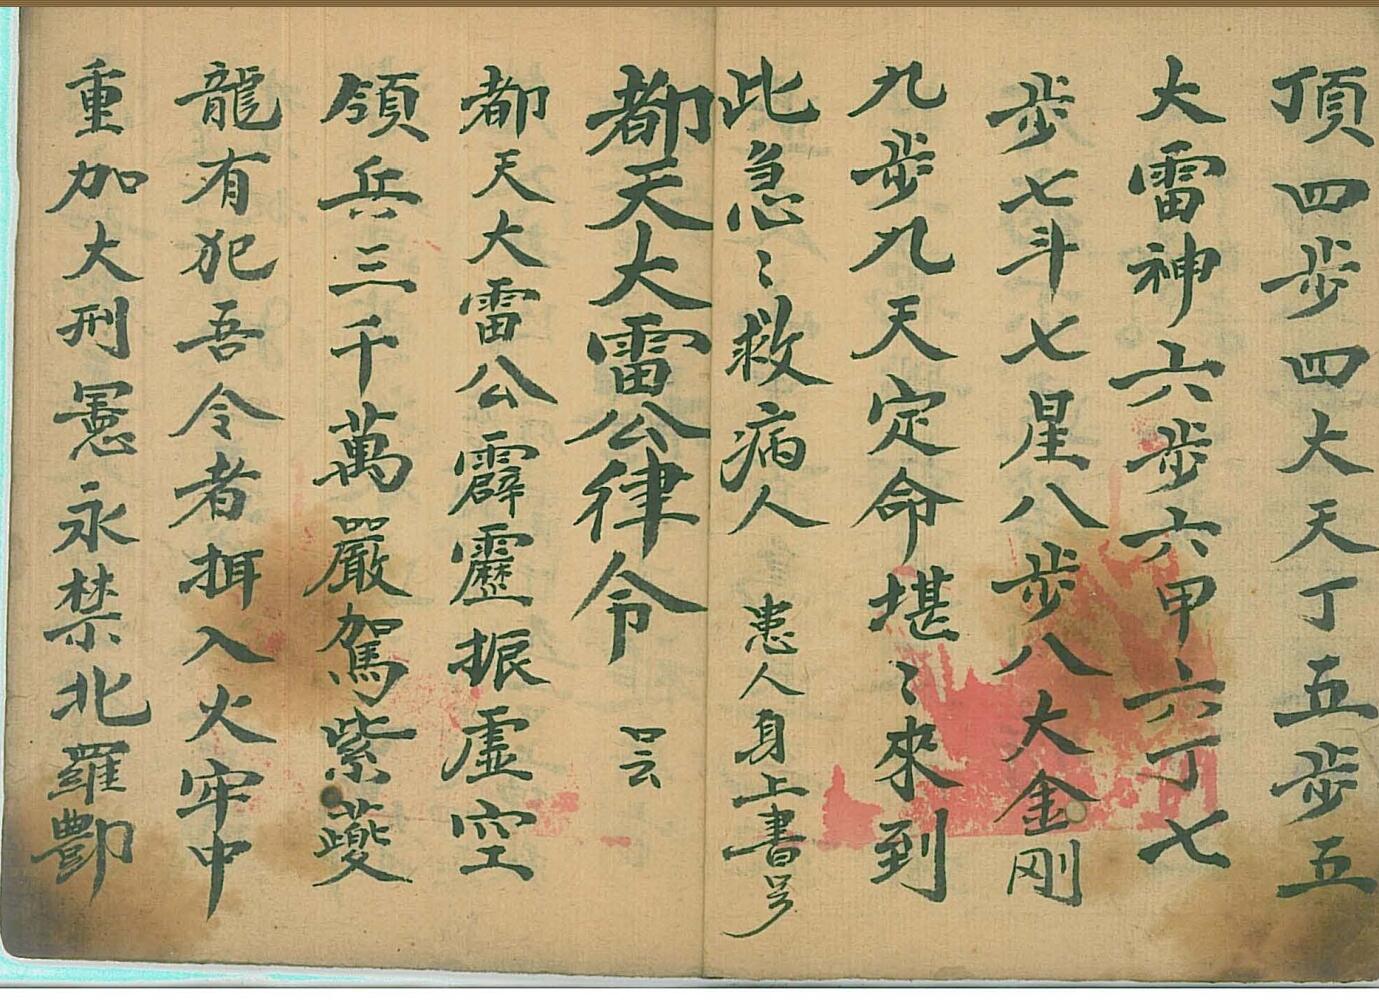 頂四步四大天丁五步五
大雷神六步六甲六丁七
步七斗七星八步八大金剛
九步九天定命堪〻來到
此急〻救病人 患人身上書号
都天大雷公律令 㕵
都天大雷公霹靂振虛空
領兵三千萬嚴駕紫
龍有犯吾令者押入火牢中
重加大刑憲永禁北羅酆